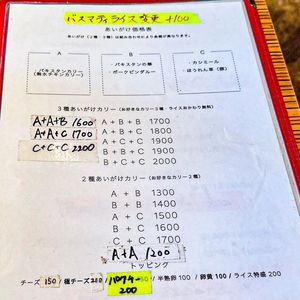 バスマティライス変更 +100
あいがけ価格表
あいがけ(2種・3種)は組み合わせにより金額が異なります。
A
・パキスタンカリー
(無水チキンカリー)
B
・パキスタンの華
・ポークビンダルー
C
・カシミール
・ほうれん草(豚)
3種あいがけカリー(お好きなカリー3種・ライスおかわり無料)
A+A+B 1600
A+A+C 1700
C+C+C 2200
A + B + B 1700
A + B + C 1800
A + C + C 1900
B + B + C 1900
B + C + C 2000
2種あいがけカリー(お好きなカリー2種)
A + B 1300
B + B 1400
A + C 1500
B + C 1600
C + C 1700
A+A 1200
トッピング
チーズ 150 / 極チーズ 200 / パクチー 200 / 半熟卵 100 / 卵黄 100 / ライス特盛 200